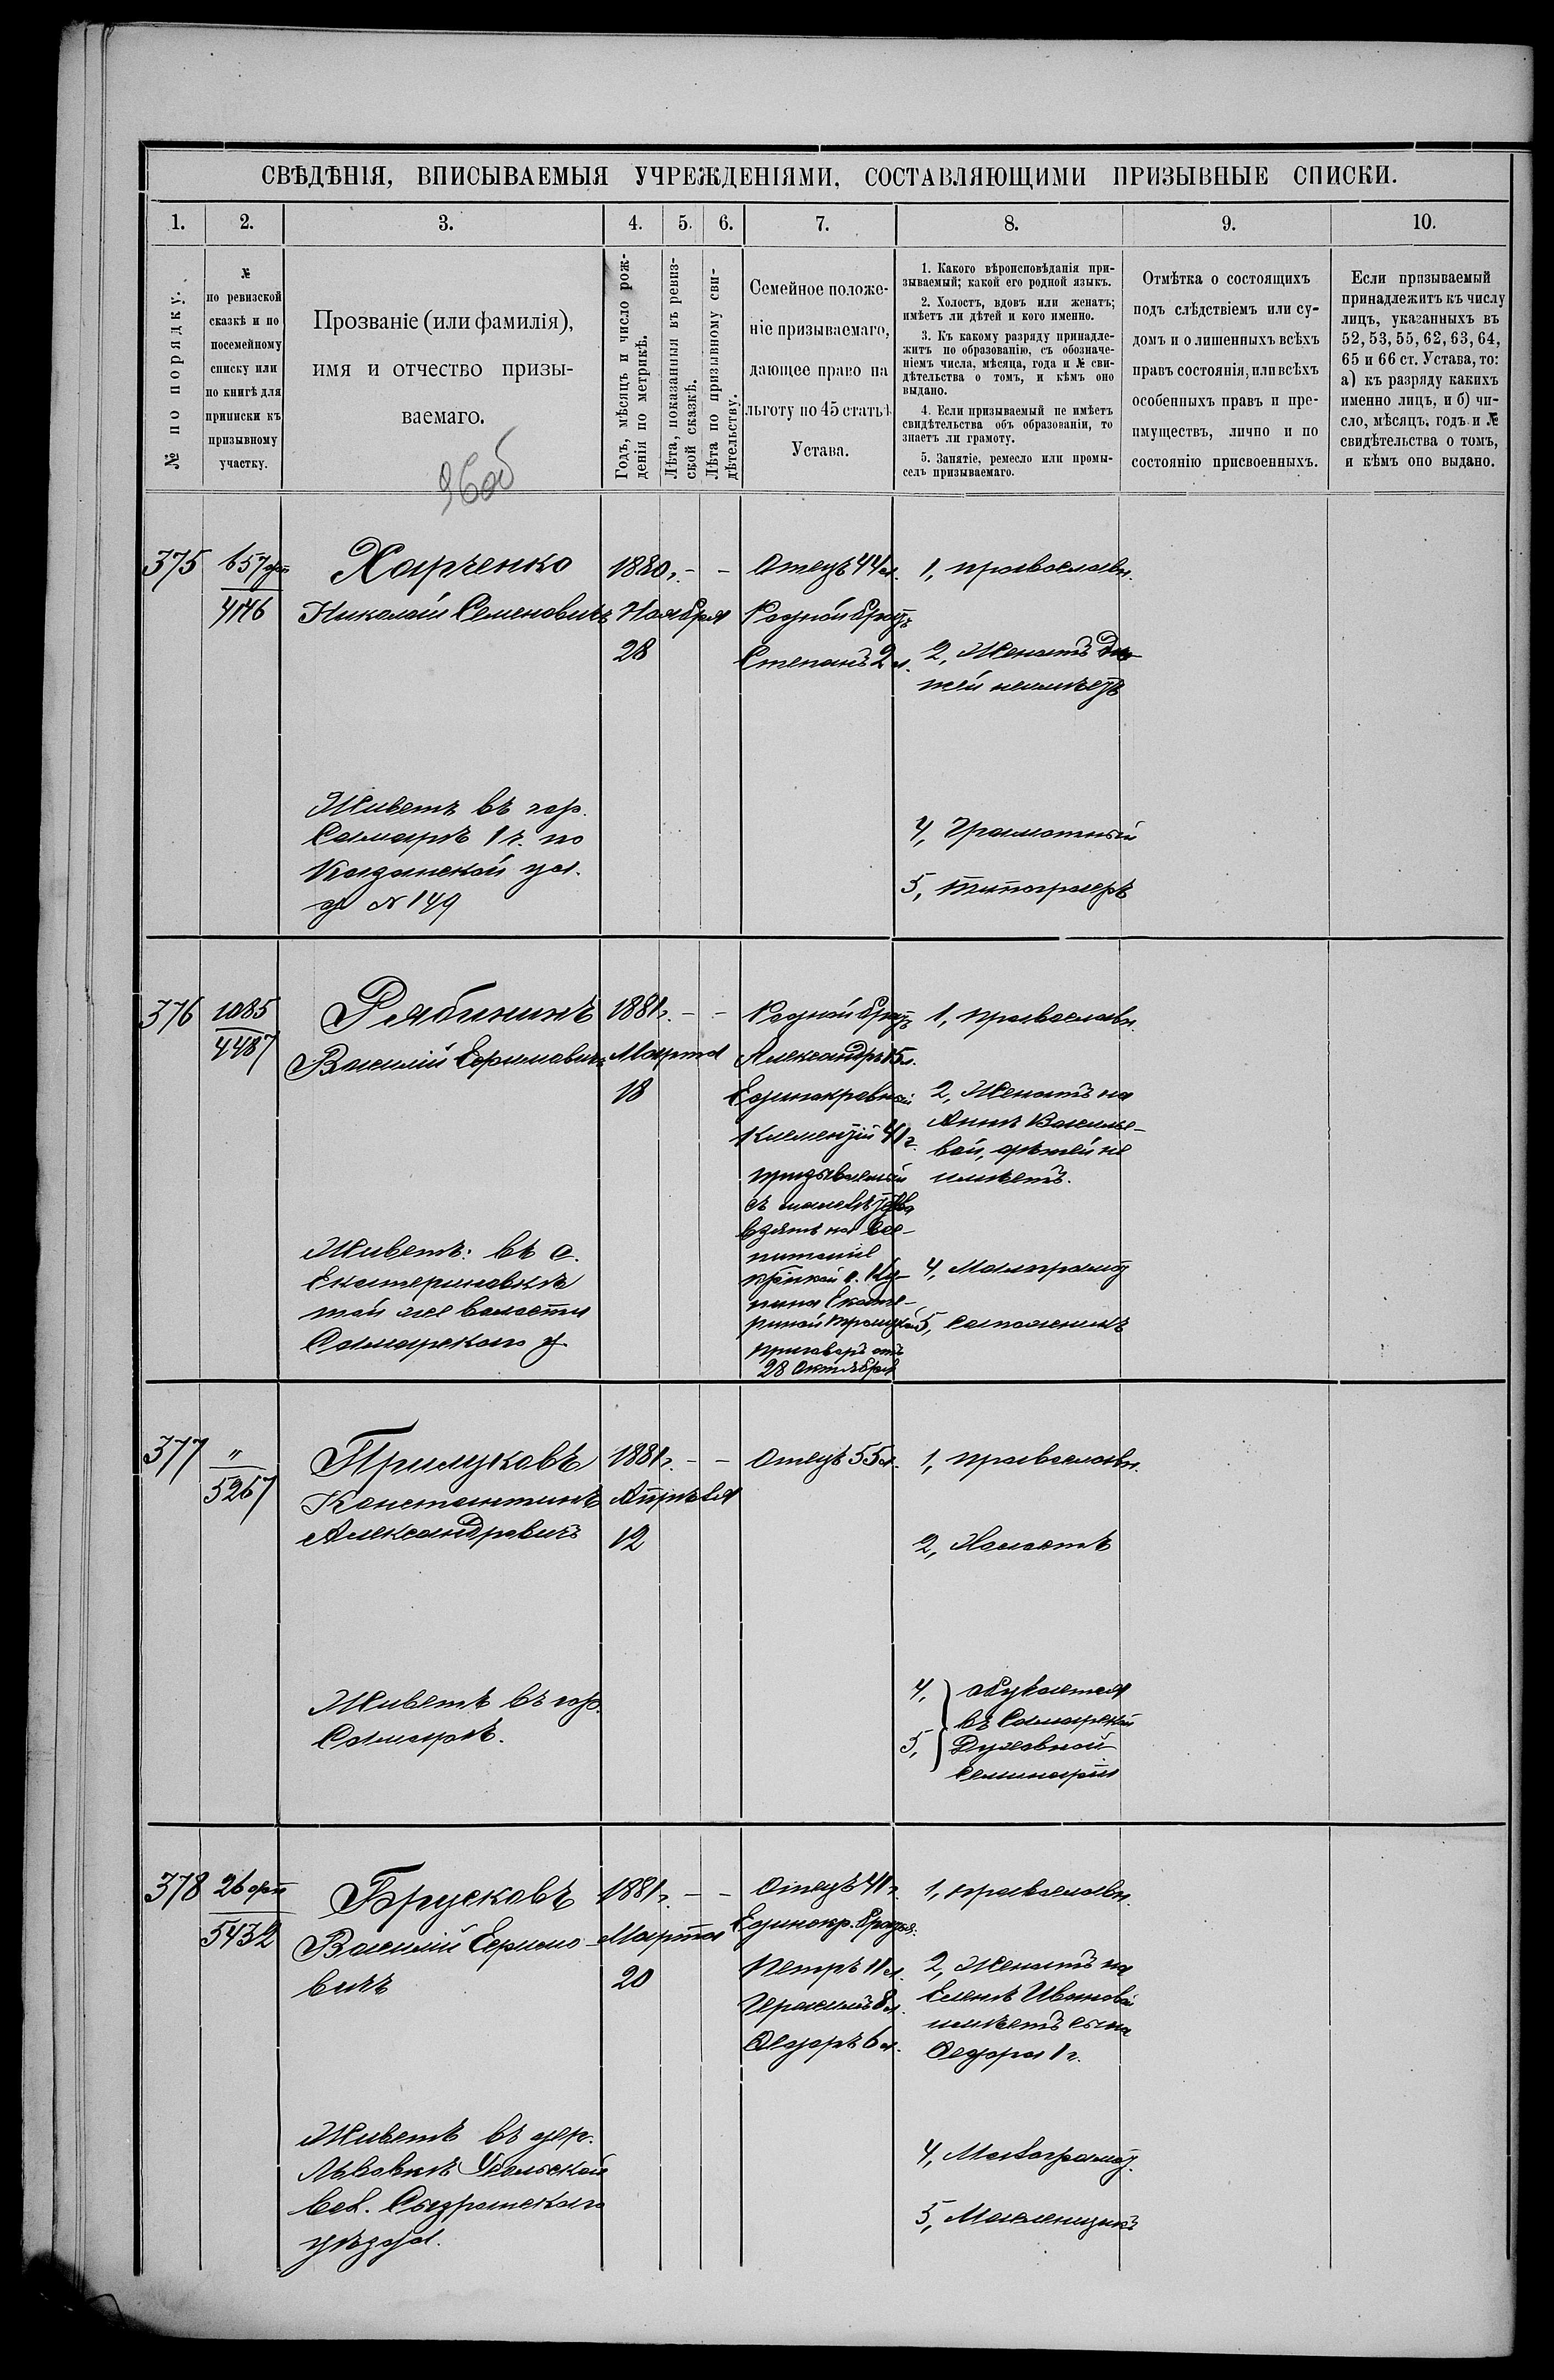 СВѢДѢНІЯ, ВПИСЫВАЕМЫЯ УЧРЕЖДЕНІЯМИ, СОСТАВЛЯЮЩИМИ ПРИЗЫВНЫЕ СПИСКИ.
1. 2. 3. 4. 5. 6. 7. 8. 9. 10.
№ по порядку.
№
по ревизской
сказкѣ и по
посемейному
списку или
по книгѣ для
приписки къ
призывному
участку.
Прозваніе (или фамилія),
имя и отчество призы-
ваемаго.
Годъ, мѣсяцъ и число рож-
денія по метрикѣ.
Лѣта, показанныя въ ревиз-
ской сказкѣ.
Лѣта по призывному сви-
дѣтельству.
Семейное положе-
ніе призываемаго,
дающее право на
льготу по 45 статьѣ
Устава.
1. Какого вѣроисповѣданія при-
зываемый; какой его родной языкъ.
2. Холостъ, вдовъ или женатъ;
имѣетъ ли дѣтей и кого именно.
3. Къ какому разряду принадле-
житъ по образованію, съ обозначе-
ніемъ числа, мѣсяца, года и № сви-
дѣтельства о томъ, и кѣмъ оно
выдано.
4. Если призываемый не имѣетъ
свидѣтельства объ образованіи, то
знаетъ ли грамоту.
5. Занятіе, ремесло или промы-
селъ призываемаго.
Отмѣтка о состоящихъ
подъ слѣдствіемъ или су-
домъ и о лишенныхъ всѣхъ
правъ состоянія, или всѣхъ
особенныхъ правъ и пре-
имуществъ, лично и по
состоянію присвоенныхъ.
Если призываемый
принадлежитъ къ числу
лицъ, указанныхъ въ
52, 53, 55, 62, 63, 64,
65 и 66 ст. Устава, то:
а) къ разряду какихъ
именно лицъ, и б) чи-
сло, мѣсяцъ, годъ и №
свидѣтельства о томъ,
и кѣмъ оно выдано.
375
657
4146
Харченко
Николай Семеновичъ
Живетъ въ гор.
Самарѣ 1 ч. по
Казанской ул.
д № 149
1880 г.
Ноября
28
Отецъ 44 л.
Родной братъ
Степанъ 2 л.
1, православн.
2, Женатъ дѣ-
тей неимѣетъ
4, Грамотный
5, типографъ
376
1085
4487
Рябининъ
Василій Ефимовичъ
Живетъ: въ с.
Екатериновкѣ
той же волости
Самарскаго у
1881 г.
Марта
18
Родной братъ
Александръ 15 л.
Единокровный
Климентій 41 г.
призываемый
съ малолѣтства
взятъ на вос-
питаніе
приговоръ отъ
28 Октября
1, православн.
2, Женатъ на
Аннѣ Василье-
вой, дѣтей не
имѣетъ.
4, Малограмот
5, Сапожникъ
377
"
5267
Прилуковъ
Константинъ
Александровичъ
Живетъ въ гор.
Самарѣ.
1881 г.
Апрѣля
12
Отецъ 55 л.
1, православн.
2, Холостъ
4, 5, обучается
въ Самарской
Духовной
Семинаріи
378
26
5432
Брусковъ
Василій Ефимо-
вичъ
Живетъ въ дер.
Львовкѣ Усольской
вол. Сызранскаго
уѣзда.
1881 г.
Марта
20
Отецъ 41 г.
Единокр. братья:
Петръ 11 л.
Герасимъ 8 л.
Ѳедоръ 6 л.
1, православн.
2, Женатъ на
Еленѣ Ивановой
имѣетъ сына
Ѳедора 1 г.
4, Малограмот.
5, Масленщикъ